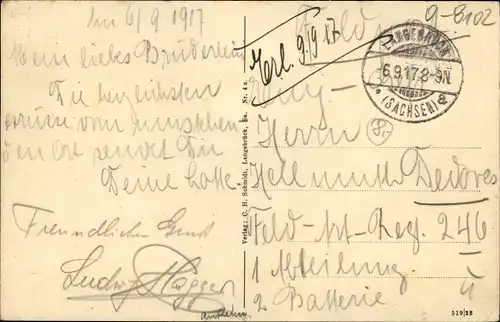 Im 6/9 1917
Mein liebes Brüderlein
Die herzlichsten
Grüße vom umstehen-
den Ort sendet Dir
Deine Lotte.
Freundlichen Gruß
Ludwig
Verlag: C. H. Schmidt, Langebrück, Sa. Nr. 4
9-8102
Feldpost
Erl. 9/9 17
LANGEBRÜCK
6.9.17.8-9N
* (SACHSEN) a
An
Herrn
Hellmuth Dedores
Feld-Art-Reg. 246
1 Abteilung
2 Batterie
519/28